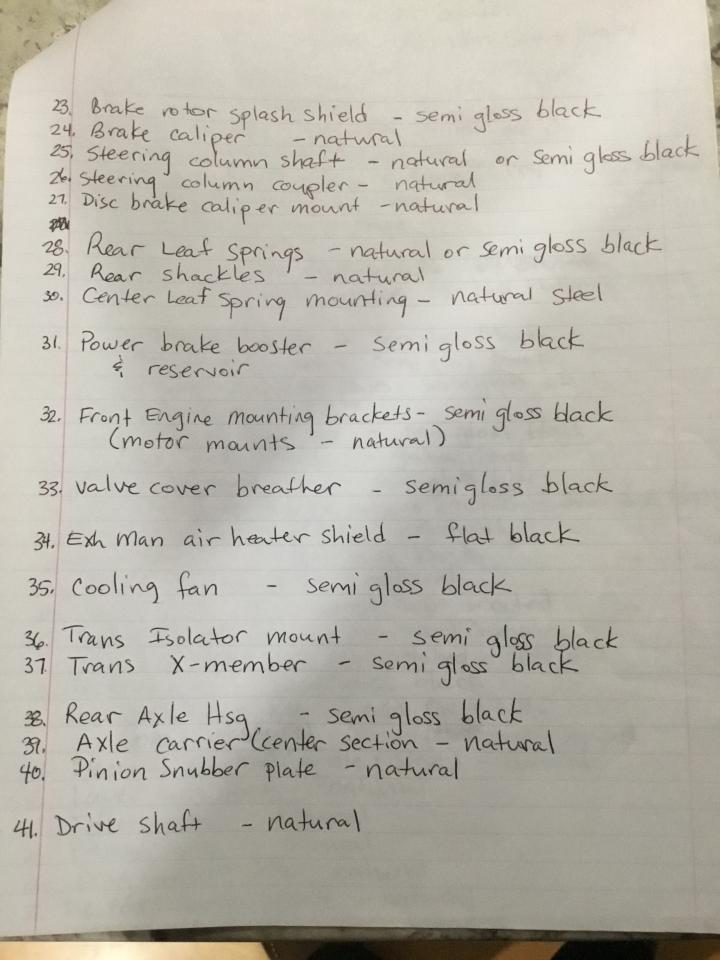 23. Brake rotor splash shield - semi gloss black
24. Brake caliper - natural
25. Steering column shaft - natural or semi gloss black
26. Steering column coupler - natural
27. Disc brake caliper mount - natural
28. Rear Leaf Springs - natural or semi gloss black
29. Rear shackles - natural
30. Center Leaf Spring mounting - natural steel
31. Power brake booster - semi gloss black
& reservoir
32. Front Engine mounting brackets - semi gloss black
(motor mounts - natural)
33. valve cover breather - semi gloss black
34. Exh Man air heater shield - flat black
35. Cooling fan - semi gloss black
36. Trans Isolator mount - semi gloss black
37. Trans X-member - semi gloss black
38. Rear Axle Hsg - semi gloss black
39. Axle carrier (center section - natural
40. Pinion Snubber plate - natural
41. Drive shaft - natural